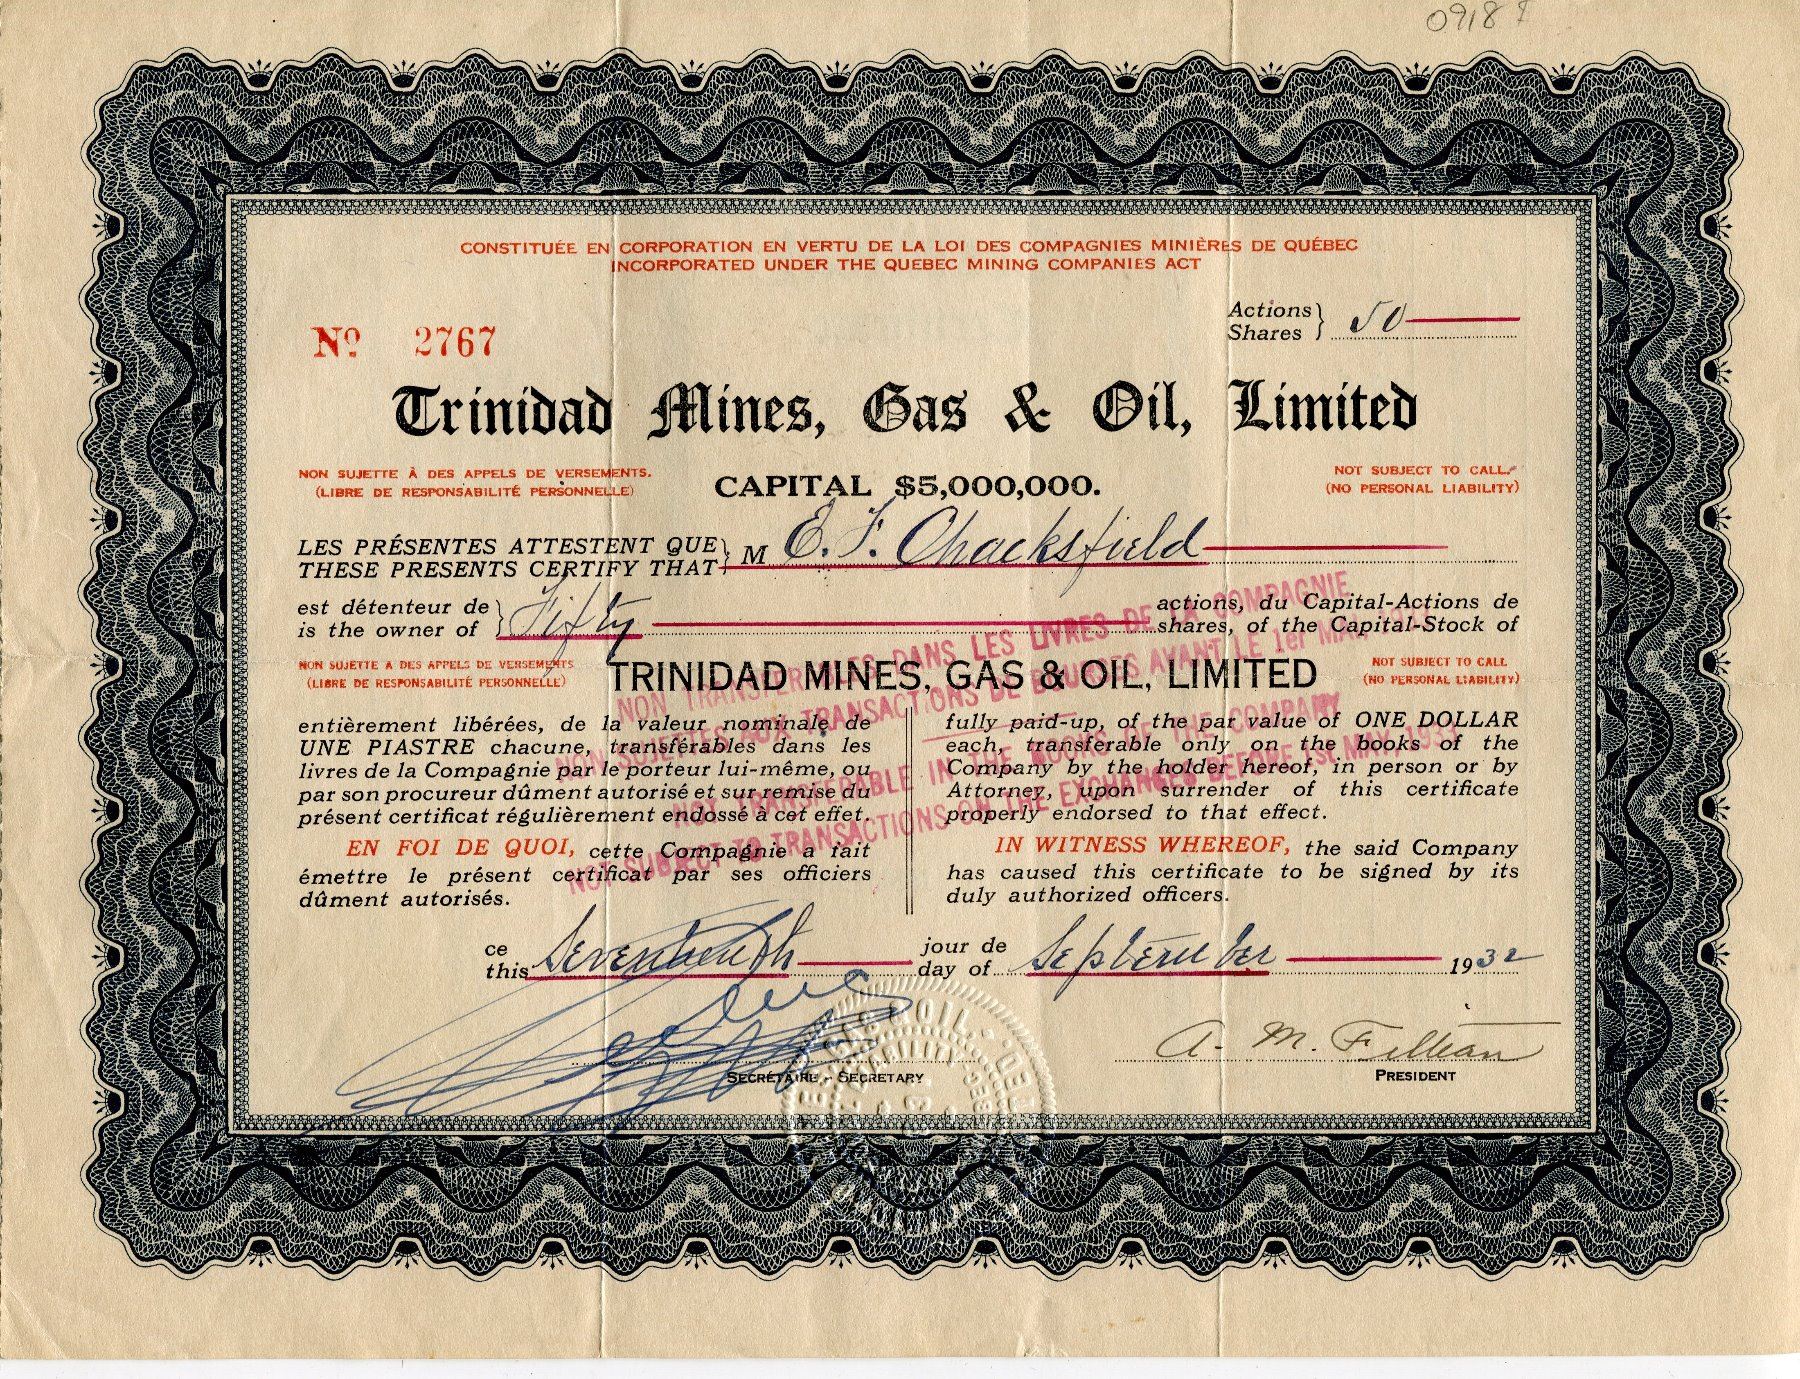 0918
CONSTITUÉE EN CORPORATION EN VERTU DE LA LOI DES COMPAGNIES MINIÈRES DE QUÉBEC
INCORPORATED UNDER THE QUEBEC MINING COMPANIES ACT
Actions
Shares } 50
Nº 2767
Trinidad Mines, Gas & Oil, Limited
NON SUJETTE À DES APPELS DE VERSEMENTS.
(LIBRE DE RESPONSABILITÉ PERSONNELLE)
CAPITAL $5,000,000.
NOT SUBJECT TO CALL.
(NO PERSONAL LIABILITY)
LES PRÉSENTES ATTESTENT QUE
THESE PRESENTS CERTIFY THAT } M E. F. Chacksfield
est détenteur de
is the owner of } Fifty
actions, du Capital-Actions de
shares, of the Capital-Stock of
NON SUJETTE A DES APPELS DE VERSEMENTS
(LIBRE DE RESPONSABILITÉ PERSONNELLE)
TRINIDAD MINES, GAS & OIL, LIMITED
NOT SUBJECT TO CALL
(NO PERSONAL LIABILITY)
entièrement libérées, de la valeur nominale de
UNE PIASTRE chacune, transférables dans les
livres de la Compagnie par le porteur lui-même, ou
par son procureur dûment autorisé et sur remise du
présent certificat régulièrement endossé à cet effet.
EN FOI DE QUOI, cette Compagnie a fait
émettre le présent certificat par ses officiers
dûment autorisés.
fully paid-up, of the par value of ONE DOLLAR
each, transferable only on the books of the
Company by the holder hereof, in person or by
Attorney, upon surrender of this certificate
properly endorsed to that effect.
IN WITNESS WHEREOF, the said Company
has caused this certificate to be signed by its
duly authorized officers.
NON TRANSFERABLES DANS LES LIVRES DE LA COMPAGNIE
NON SUJETTES AUX TRANSACTIONS DE BOURSES AVANT LE 1er MAI
NOT TRANSFERABLE IN THE BOOKS OF THE COMPANY
NOT SUBJECT TO TRANSACTIONS ON THE EXCHANGES BEFORE 1st MAY 1933
ce
this Seventeenth jour de
day of September 1932
SECRÉTAIRE - SECRETARY
A. M. Filteau
PRESIDENT